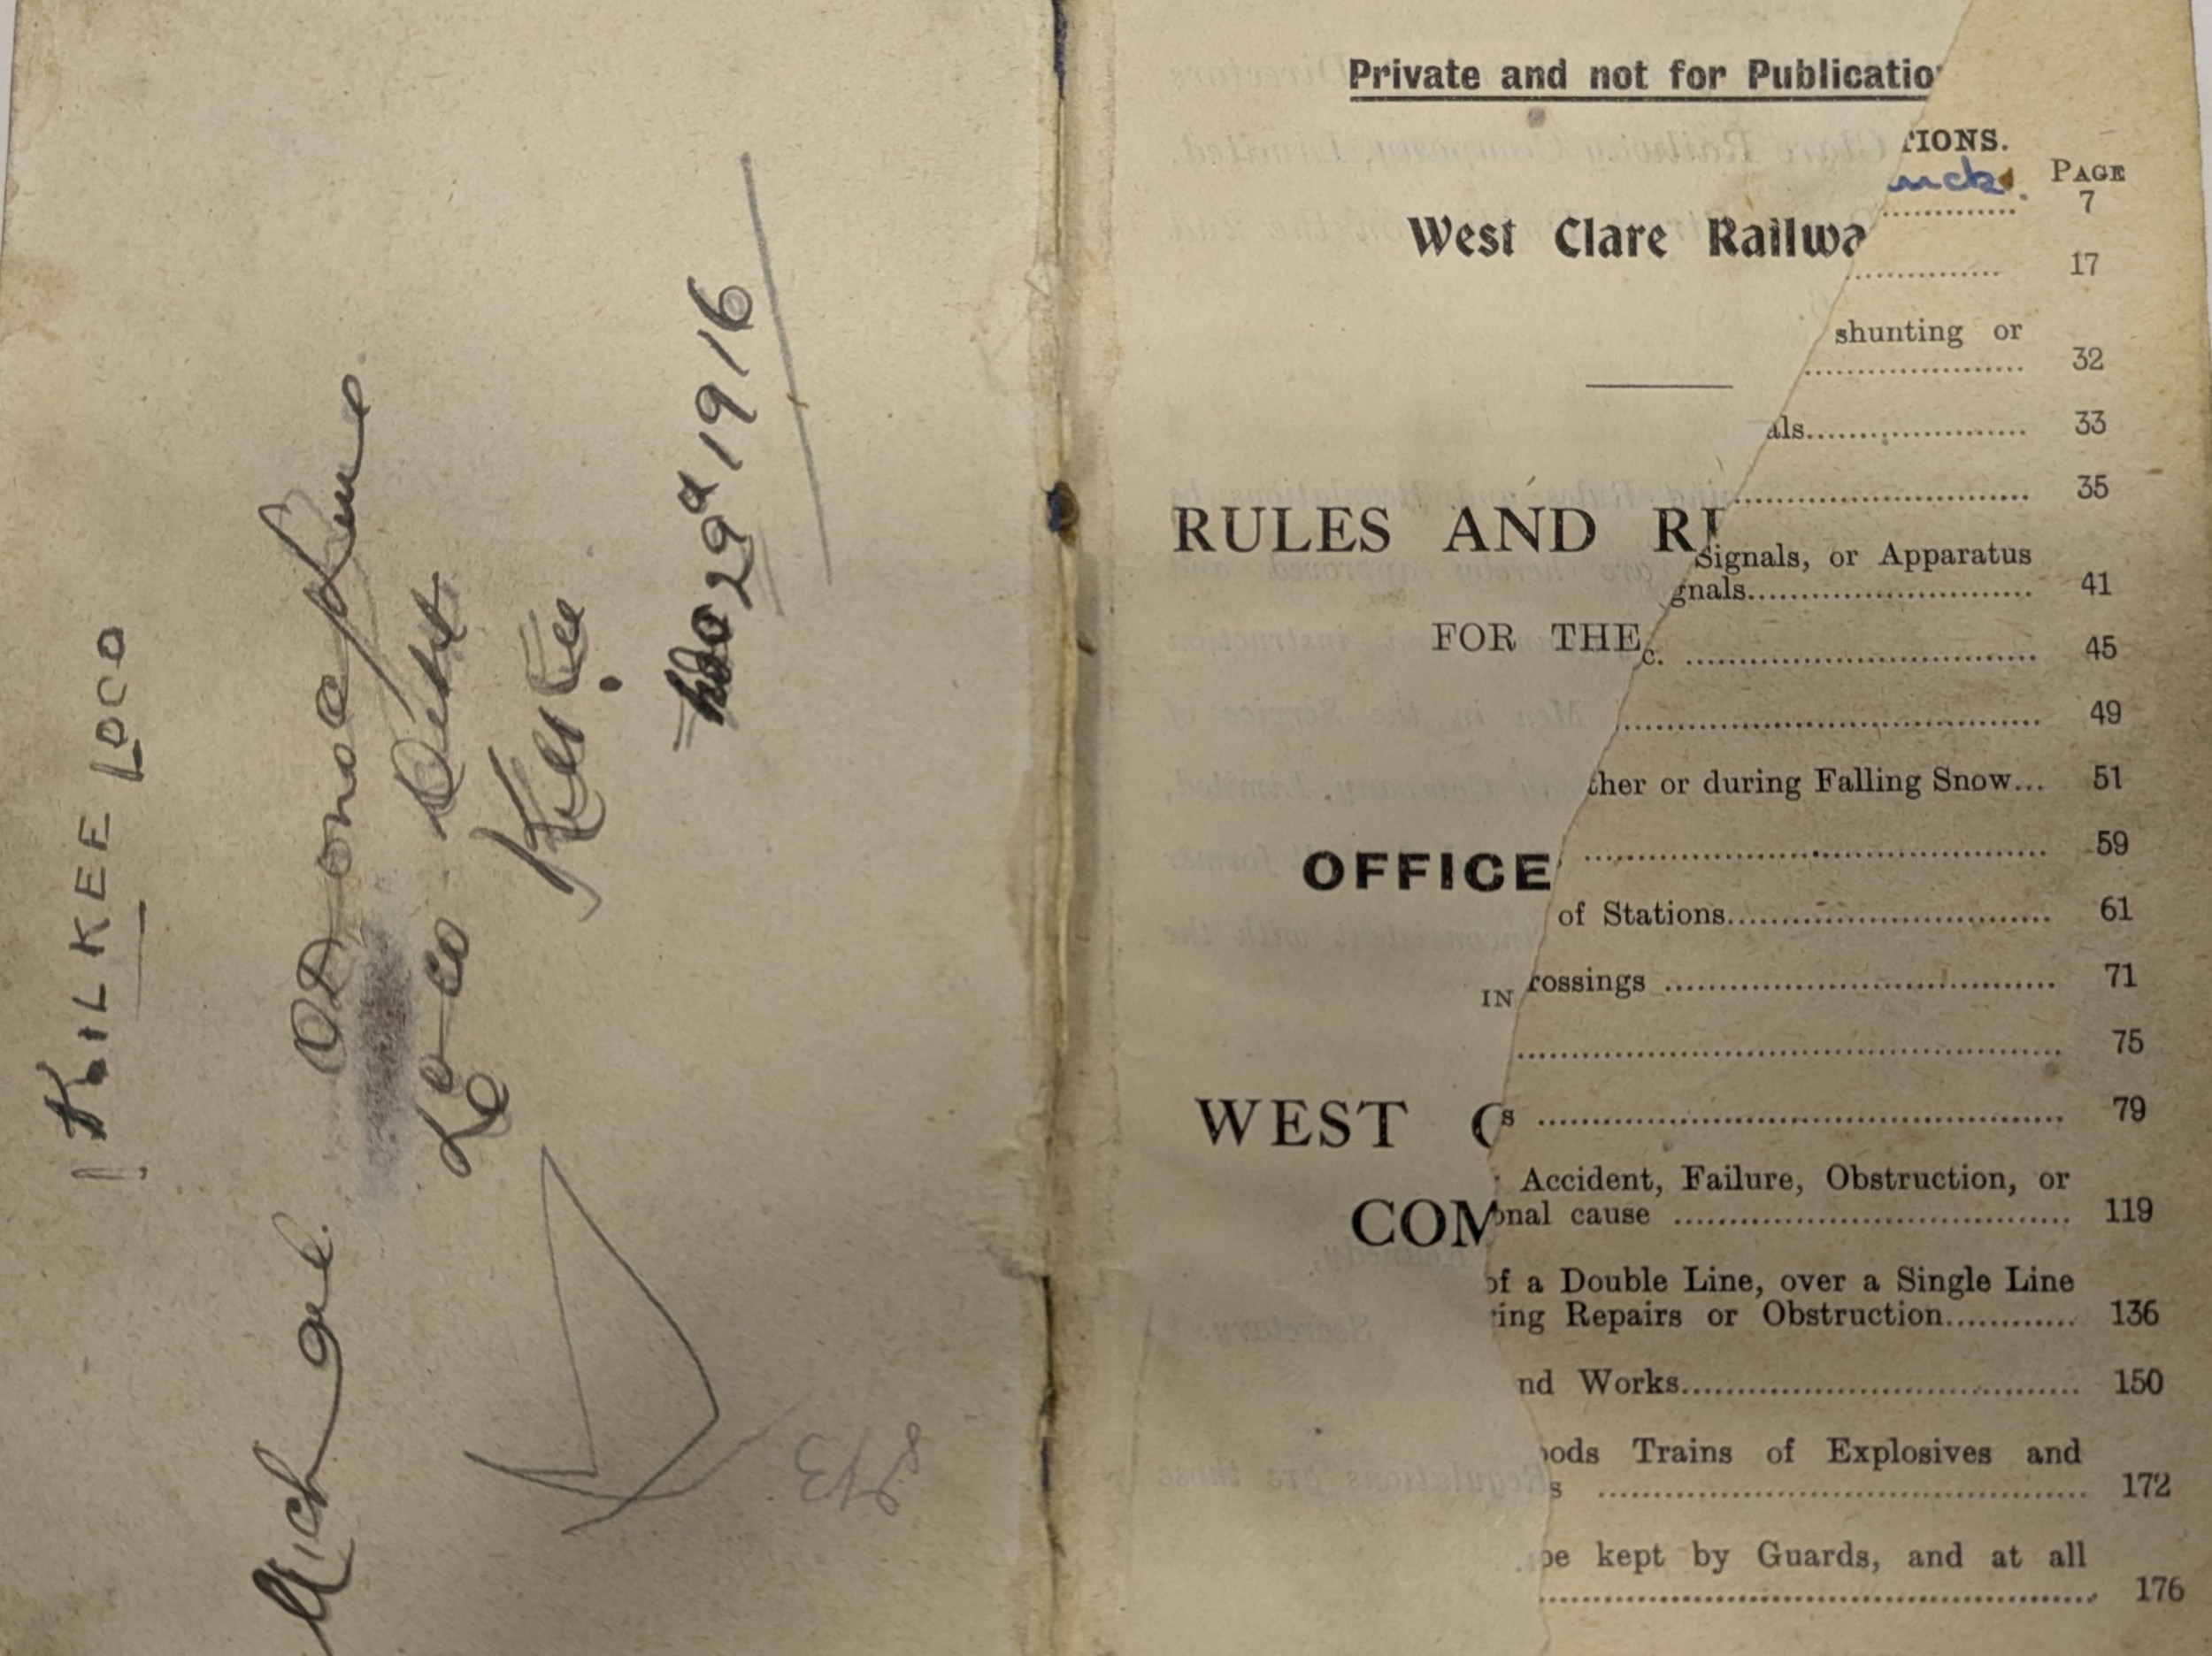 KILKEE LOCO
Michael O'Donoghue
Loco Dept
Kilkee
Nov 29th 1916
Private and not for Publicatio
West Clare Railwa
RULES AND R
FOR THE
OFFICE
IN
WEST C
COM
TIONS.
PAGE
7
17
shunting or
32
als 33
35
Signals, or Apparatus
gnals 41
c. 45
49
ther or during Falling Snow... 51
59
of Stations 61
rossings 71
75
s 79
Accident, Failure, Obstruction, or
onal cause 119
of a Double Line, over a Single Line
ring Repairs or Obstruction 136
nd Works 150
oods Trains of Explosives and
s 172
be kept by Guards, and at all
176